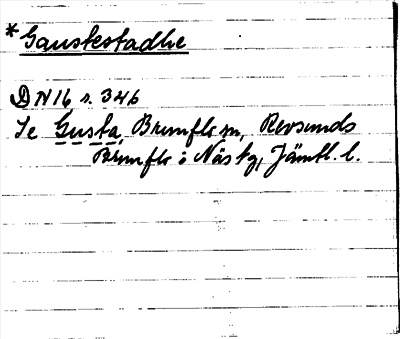 *Gaustestadhe
DN 16 s. 346
Se Gusta, Brunflo sn, Revsunds
Brunflo o Näs tg, Jämtl. l.